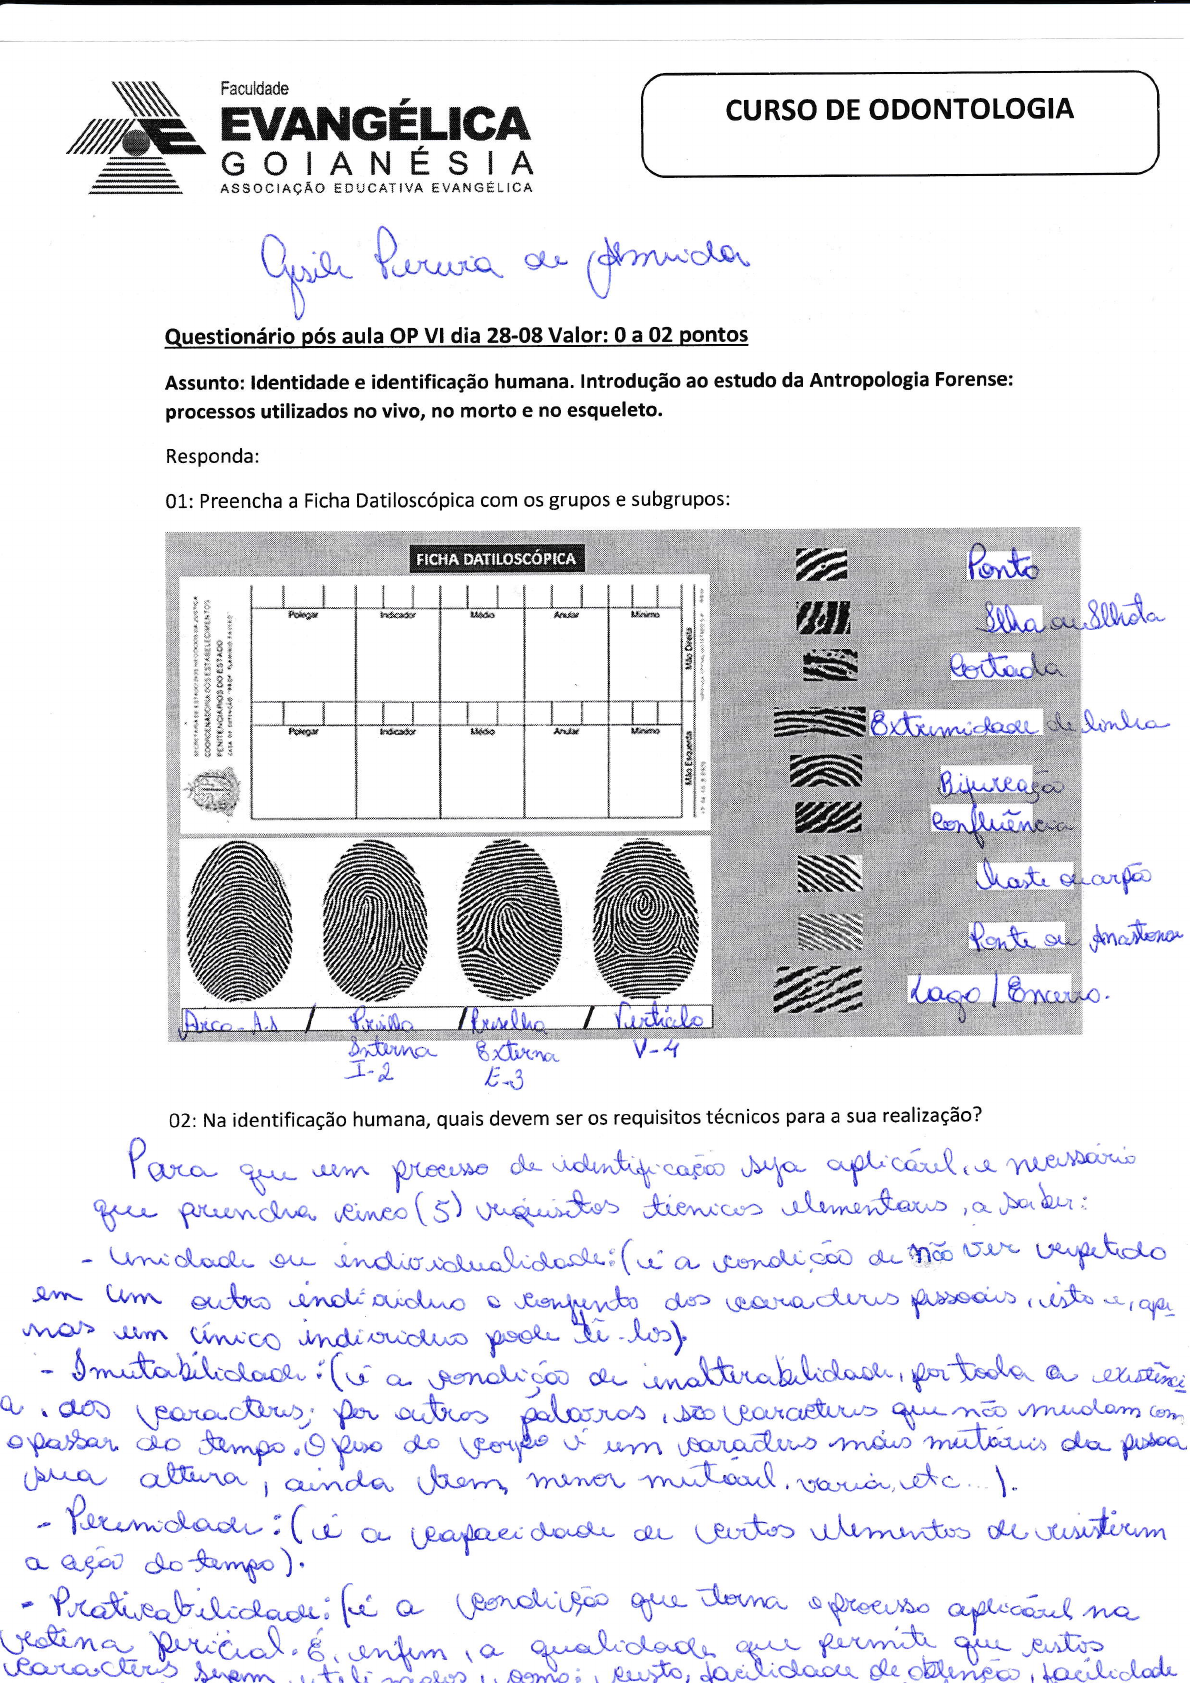 Faculdade
EVANGÉLICA
GOIANÉSIA
ASSOCIAÇÃO EDUCATIVA EVANGÉLICA
CURSO DE ODONTOLOGIA
Pereira de Almeida
Questionário pós aula OP VI dia 28-08 Valor: 0 a 02 pontos
Assunto: Identidade e identificação humana. Introdução ao estudo da Antropologia Forense:
processos utilizados no vivo, no morto e no esqueleto.
Responda:
01: Preencha a Ficha Datiloscópica com os grupos e subgrupos:
FICHA DATILOSCÓPICA
Polegar Indicador Médio Anular Mínimo
Mão Direita
Polegar Indicador Médio Anular Mínimo
Mão Esquerda
SECRETARIA DE ESTADO DOS NEGÓCIOS DA JUSTIÇA
COORDENADORIA DOS ESTABELECIMENTOS
PENITENCIÁRIOS DO ESTADO
Ponto
Ilha ou Ilhota
Cortada
Extremidade de linha
Bifurcação
Confluência
Haste ou arpão
Ponte ou
Lago / Encerro.
Arco - A.1 / Presilha / Presilha / Verticilo
Interna Externa V-4
I-2 E-3
02: Na identificação humana, quais devem ser os requisitos técnicos para a sua realização?
Para que um processo de identificação seja aplicável, é necessário
que preencha cinco (5) requisitos técnicos elementares, a saber:
- Unidade ou individualidade: (é a condição de não ver repetido
em um outro indivíduo o conjunto dos caracteres pessoais, isto é, ape-
nas um único indivíduo pode tê-los).
- Imutabilidade: (é a condição de inalterabilidade, por toda a existênci
a, dos caracteres; por outros palavras, são caracteres que não mudam com
o passar do tempo. O peso do corpo é um caracters mais mutáveis da pessoa
sua altura, ainda bem menor mutável. varia, etc...).
- Perenidade: (é a capacidade de certos elementos de resistirem
a ação do tempo).
- Praticabilidade: (é a condição que torna o processo aplicável na
rotina pericial. É, enfim, a qualidade que permite que estos
caracteres serem utilizados, como: custo, facilidade de obtenção, facilidade